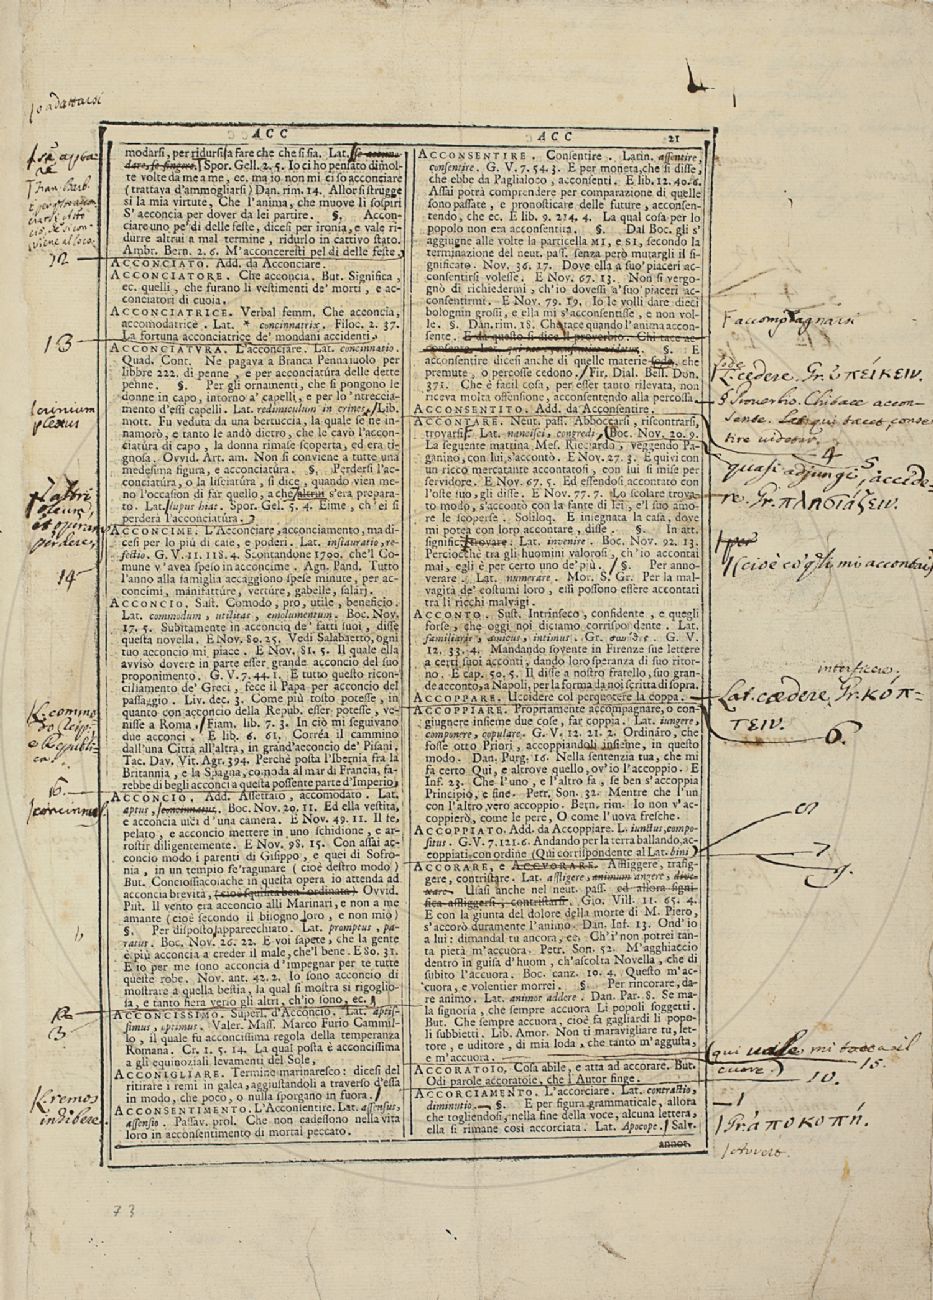 ACC
ACC 21
modarsi, per ridursi a fare che che si sia. Lat.
Spor. Gell. 2. 5. Io ci ho pensato dimol-
te volte da me a me, ec. ma io non mi ci so acconciare
(trattava d'ammogliarsi) Dan. rim. 14. Allor si strugge
si la mia virtute, Che l'anima, che muove li sospiri
S' acconcia per dover da lei partire. §. Accon-
ciare uno pe'dì delle feste, dicesi per ironia, e vale ri-
durre altrui a mal termine, ridurlo in cattivo stato.
Ambr. Bern. 2. 6. M'acconceresti pel dì delle feste
ACCONCIATO. Add. da Acconciare.
ACCONCIATORE. Che acconcia. But. Significa,
ec. quelli, che furano li vestimenti de' morti, e ac-
conciatori di cuoia.
ACCONCIATRICE. Verbal femm. Che acconcia,
accomodatrice. Lat. * concinnatrix. Filoc. 2. 37.
La fortuna acconciatrice de' mondani accidenti
ACCONCIATVRA. L'acconciare. Lat. concinnatio.
Quad. Cont. Ne pagata a Branca Pennaiuolo per
libbre 222. di penne, e per acconciatura delle dette
penne. §. Per gli ornamenti, che si pongono le
donne in capo, intorno a' capelli, e per lo 'ntreccia-
mento d'essi capelli. Lat. redimiculum in crines. Lib.
mott. Fu veduta da una bertuccia, la quale se ne in-
namorò, e tanto le andò dietro, che le cavò l'accon-
ciatura di capo, la donna rimase scoperta, ed era ti-
gnosa. Ovvid. Art. am. Non si conviene a tutte una
medesima figura, e acconciatura. §. Perdersi l'ac-
conciatura, o la lisciatura, si dice, quando vien me-
no l'occasion di far quello, a che altrui s'era prepara-
to. Lat. lupus hiat. Spor. Gel. 5. 4. Eime, ch'ei si
perderà l'acconciatura.
ACCONCIME. L'acconciare, acconciamento, ma di-
cesi per lo più di case, e poderi. Lat. instauratio, re-
fectio. G. V. 11. 118. 4. Scontandone 1700. che'l Co-
mune v'avea speso in acconcime. Agn. Pand. Tutto
l'anno alla famiglia accaggiono spese minute, per ac-
concimi, manifatture, vetture, gabelle, salari.
ACCONCIO. Sust. Comodo, pro, utile, beneficio.
Lat. commodum, utilitas, emolumentum. Boc. Nov.
17. 5. Subitamente in acconcio de' fatti suoi, disse
questa novella. E Nov. 80. 25. Vedi Salabaetto, ogni
tuo acconcio mi piace. E Nov. 81. 5. Il quale ella
avvisò dovere in parte esser grande acconcio del suo
proponimento. G. V. 7. 44. 1. E tutto questo ricon-
ciliamento de' Greci, fece il Papa per acconcio del
passaggio. Liv. dec. 3. Come più tosto potesse, in
quanto con acconcio della Repub. esser potesse, ve-
nisse a Roma. Fiam. lib. 7. 3. In ciò mi seguivano
due acconci. E lib. 6. 61. Corréa il cammino
dall'una Città all'altra, in grand'acconcio de' Pisani.
Tac. Dav. Vit. Agr. 394. Perchè posta l'Ibernia fra la
Britannia, e la Spagna, comoda al mar di Francia, fa-
rebbe di begli acconci a questa possente parte d'Imperio
ACCONCIO. Add. Assettato, accomodato. Lat.
aptus, Boc. Nov. 20. 11. Ed ella vestita,
e acconcia uscì d'una camera. E Nov. 49. 11. Il fe,
pelato, e acconcio mettere in uno schidione, e ar-
rostir diligentemente. E Nov. 98. 15. Con assai ac-
concio modo i parenti di Gisippo, e quei di Sofro-
nia, in un tempio fe'ragunare (cioè destro modo)
But. Conciossiacosache in questa opera io attenda ad
acconcia brevità, (cioè squisita ben 'ordinata) Ovvid.
Pist. Il vento era acconcio alli Marinari, e non a me
amante (cioè secondo il bisogno loro, e non mio)
§. Per disposto, apparecchiato. Lat. promptus, pa-
ratus. Boc. Nov. 26. 22. E voi sapete, che la gente
è più acconcia a creder il male, che'l bene. E 80. 31.
E io per me sono acconcia d'impegnar per te tutte
queste robe. Nov. ant. 42. 2. Io sono acconcio di
mostrare a quella bestia, la qual si mostra si rigoglio-
sa, e tanto fiera verso gli altri, ch'io sono, ec.
ACCONCISSIMO. Superl. d'Acconcio. Lat. aptis-
simus, optimus. Valer. Mass. Marco Furio Cammil-
lo, il quale fu acconcissima regola della temperanza
Romana. Cr. 1. 5. 14. La qual posta è acconcissima
a gli equinoziali levamenti del Sole,
ACCONIGLIARE. Termine marinaresco: dicesi del
ritirare i remi in galea, aggiustandoli a traverso d'essa
in modo, che poco, o nulla sporgano in fuora.
ACCONSENTIMENTO. L'Acconsentire. Lat. assensus,
assensio. Passav. prol. Che non cadessono nella vita
loro in acconsentimento di mortal peccato.
ACCONSENTIRE. Consentire. Latin. assentire,
consentire. G. V. 7. 54. 3. E per moneta, che si disse,
che ebbe da Paglialoco, acconsentì. E lib. 12. 40. 6.
Assai potrà comprendere per comparazione di quelle
sono passate, e pronosticare delle future, acconsen-
tendo, che ec. E lib. 9. 274. 4. La qual cosa per lo
popolo non era acconsentita. §. Dal Boc. gli s'
aggiugne alle volte la particella MI, e SI, secondo la
terminazione del neut. pass. senza però mutargli il si-
gnificato. Nov. 36. 17. Dove ella a suo' piaceri ac-
consentirsi volesse. E Nov. 67. 13. Non si vergo-
gnò di richiedermi, ch'io dovessi a'suo' piaceri ac-
consentirmi. E Nov. 79. 19. Io le volli dare dieci
bolognin grossi, e ella mi s'acconsentisse, e non vol-
le. §. Dan. rim. 18. Che tace quando l'anima accon-
sente. E da questo si dice il proverbio. Chi tace ac-
§. E
acconsentire dicesi anche di quelle materie sode, che
premute, o percosse cedono. Fir. Dial. Bell. Don.
371. Che è facil cosa, per esser tanto rilevata, non
riceva molta offensione, acconsentendo alla percossa
ACCONSENTITO. Add. da Acconsentire.
ACCONTARE. Neut. pass. Abboccarsi, riscontrarsi,
trovarsi. Lat. nancisci, congredi, Boc. Nov. 20. 9.
La seguente mattina Mes. Ricciardo, veggendo Pa-
ganino, con lui, s'accontò. E Nov. 27. 3. E quivi con
un ricco mercatante accontatosi, con lui si mise per
servidore. E Nov. 67. 5. Ed essendosi accontato con
l'oste suo, gli disse. E Nov. 77. 7. Lo scolare trova-
to modo, s'accontò con la fante di lei, e'l suo amo-
re le scoperse. Soliloq. E insegnata la casa, dove
mi potea con loro accontare, disse §. In att.
signific. Trovare. Lat. invenire. Boc. Nov. 92. 13.
Perciocchè tra gli huomini valorosi, ch'io accontai
mai, egli è per certo uno de' più. §. Per anno-
verare. Lat. numerare. Mor. S. Gr. Per la mal-
vagità de' costumi loro, essi possono essere accontati
tra li ricchi malvagi.
ACCONTO. Sust. Intrinseco, confidente, e quegli
forse, che oggi noi diciamo corrispondente. Lat.
familiaris, amicus, intimus. Gr. G. V.
12. 33. 4. Mandando sovente in Firenze sue lettere
a certi suoi acconti, dando loro speranza di suo ritor-
no. E cap. 50. 5. Il disse a nostro fratello, suo gran-
de acconto, a Napoli, per la forma da noi scritta di sopra.
ACCOPPARE. Uccider col percuotere la coppa.
ACCOPPIARE. Propriamente accompagnare, o con-
giugnere insieme due cose, far coppia. Lat. iungere,
componere, copulare. G. V. 12. 21. 2. Ordinàro, che
fosse otto Priori, accoppiandoli insieme, in questo
modo. Dan. Purg. 16. Nella sentenzia tua, che mi
fa certo Qui, e altrove quello, ov'io l'accoppio. E
Inf. 23. Che l'uno, e l'altro fa, se ben s'accoppia
Principio, e fine. Petr. Son. 32. Mentre che l'un
con l'altro, vero accoppio. Bern. rim. Io non v'ac-
coppierò, come le pere, O come l'uova fresche.
ACCOPPIATO. Add. da Accoppiare. L. iunctus, compo-
situs. G. V. 7. 121. 6. Andando per la terra ballando, ac-
coppiati con ordine (Qui corrispondente al Lat. bini)
ACCORARE, e ACCVORARE. Affliggere, trafig-
gere, contristare. Lat. affligere, animum angere,
Usasi anche nel neut. pass. ed allora signi-
fica affliggersi, contristarsi. Gio. Vill. 11. 65. 4.
E con la giunta del dolore della morte di M. Piero,
s'accorò duramente l'animo. Dan. Inf. 13. Ond' io
a lui: dimandal tu ancora, ec. Ch'i'non potrei tan-
ta pietà m'accuora. Petr. Son. 52. M'agghiaccio
dentro in guisa d'huom, ch'ascolta Novella, che di
subito l'accuora. Boc. canz. 10. 4. Questo m'ac-
cuora, e volentier morrei. §. Per rincorare, da-
re animo. Lat. animos addere. Dan. Par. 8. Se ma-
la signoria, che sempre accuora Li popoli soggetti.
But. Che sempre accuora, cioè fa gagliardi li popo-
li subbietti. Lib. Amor. Non ti maravigliare tu, let-
tore, e uditore, di mia loda, che tanto m'aggusta,
e m'accuora.
ACCORATOIO. Cosa abile, e atta ad accorare. But.
Odi parole accoratoie, che l'Autor finge.
ACCORCIAMENTO. L'accorciare. Lat. contractio,
diminutio. §. E per figura grammaticale, allora
che togliendosi, nella fine della voce, alcuna lettera,
ella si rimane così accorciata. Lat. Apocope. Salv.
annot.
o adattarsi
12
13
crinium
plexus
perdere,
14
Kremos
inhibere
accompagnarsi
cedere. Gr. ὑπείκειν.
§ Proverbio. Chi tace accon-
sente. Lat. qui tacet conse
tire videtur.
4
quasi adjungi, accede-
re. Gr. πλησιάζειν.
per
interficio.
Lat. cædere, Gr. κόπ-
τειν.
6.
8
7
9.
(qui vale, mi tocca il
cuore)
15.
10.
1
Gr. ἀποκοπή.
ovvero.
73